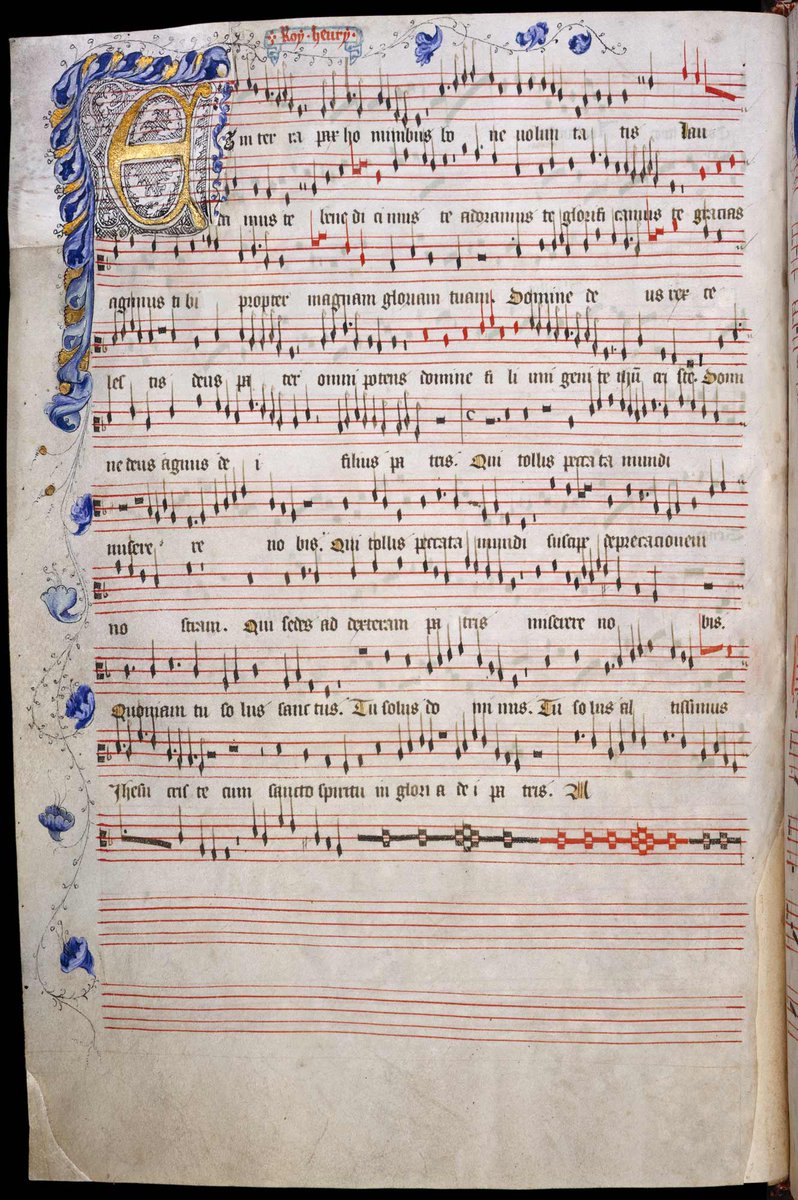 Roy henry
Et in ter ra pax ho minibus bo ne volun ta tis lau
da mus te bene di ci mus te adoramus te glorifi camus te gracias
agimus ti bi propter magnam gloriam tuam. Domine de us rex ce
les tis deus pa ter omni potens domine fi li uni geni te ihū cri ste. Domi
ne deus agnus de i filius pa tris. Qui tollis pecca ta mundi
misere re no bis. Qui tollis peccata mundi suscipe deprecacionem
no stram. Qui sedes ad dexteram pa tris miserere no bis.
Quoniam tu so lus sanc tus. Tu solus do mi nus. Tu so lus al tissimus
Ihesu cris te cum sancto spiritu in glori a de i pa tris. A